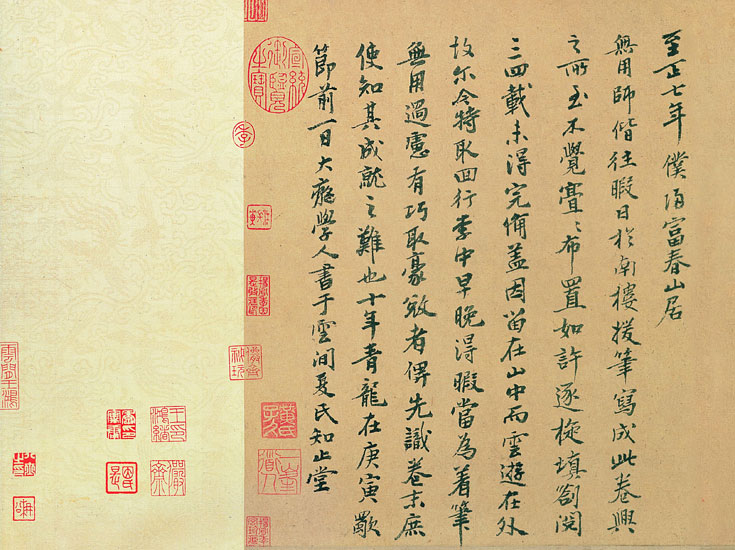 至正七年僕歸富春山居
無用師偕往暇日於南樓援筆寫成此卷興
之所至不覺亹〻布置如許逐旋填劄閱
三四載未得完備蓋因留在山中而雲遊在外
故尔今特取回行李中早晚得暇當為着筆
無用過慮有巧取豪敓者俾先識卷末庶
使知其成就之難也十年青龍在庚寅歜
節前一日大癡學人書于雲間夏氏知止堂
宣統御覽之寶
季